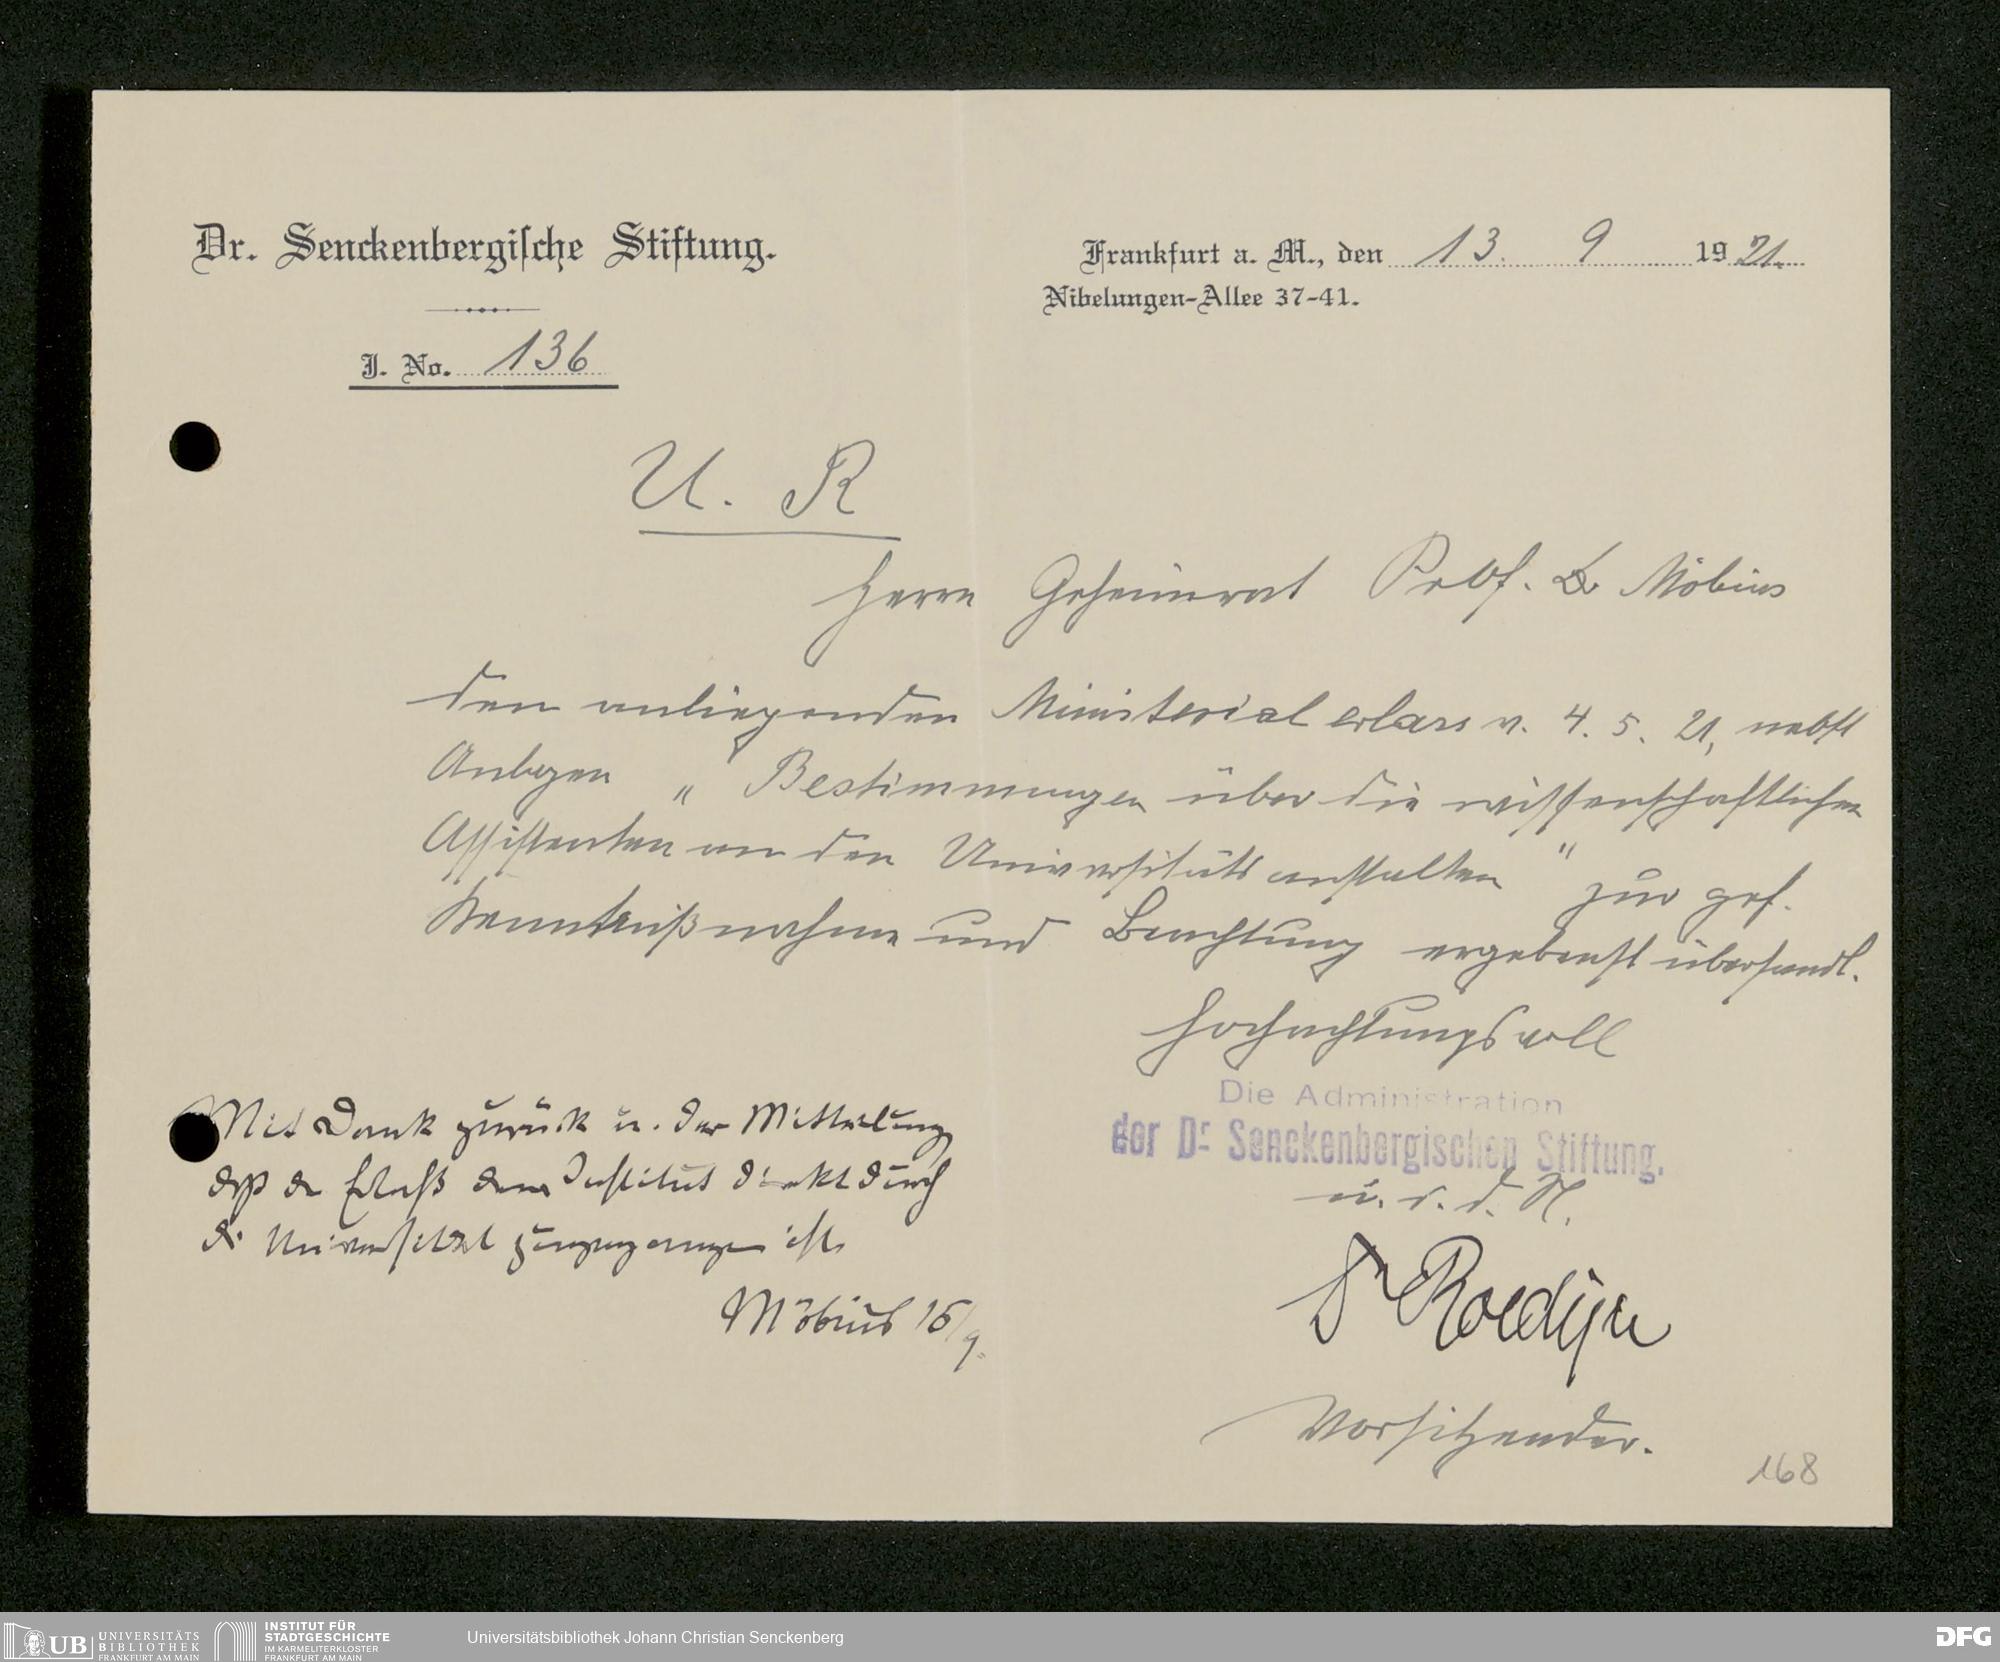 Dr. Senckenbergische Stiftung.
Frankfurt a. M., den 13. 9 1921.
Nibelungen-Allee 37-41.
J. No. 136
U. R
Herrn Geheimrat Prof. Dr Möbius
den anliegenden Ministerialerlass v. 4. 5. 21, nebst
Anlagen „Bestimmungen über die wissenschaftlichen
Assistenten an den Universitätsanstalten" zur gef.
Kenntnißnahme und Beachtung ergebenst übersandt.
Hochachtungsvoll
Die Administration
der Dr. Senckenbergischen Stiftung.
Mit Dank zurück u. der Mitteilung
daß der Erlaß dem Institut direkt durch
die Universität zugegangen ist.
Möbius 15/9.
Dr Roediger
Vorsitzender.
168
UB UNIVERSITÄTS
BIBLIOTHEK
FRANKFURT AM MAIN
INSTITUT FÜR
STADTGESCHICHTE
IM KARMELITERKLOSTER
FRANKFURT AM MAIN
Universitätsbibliothek Johann Christian Senckenberg
DFG